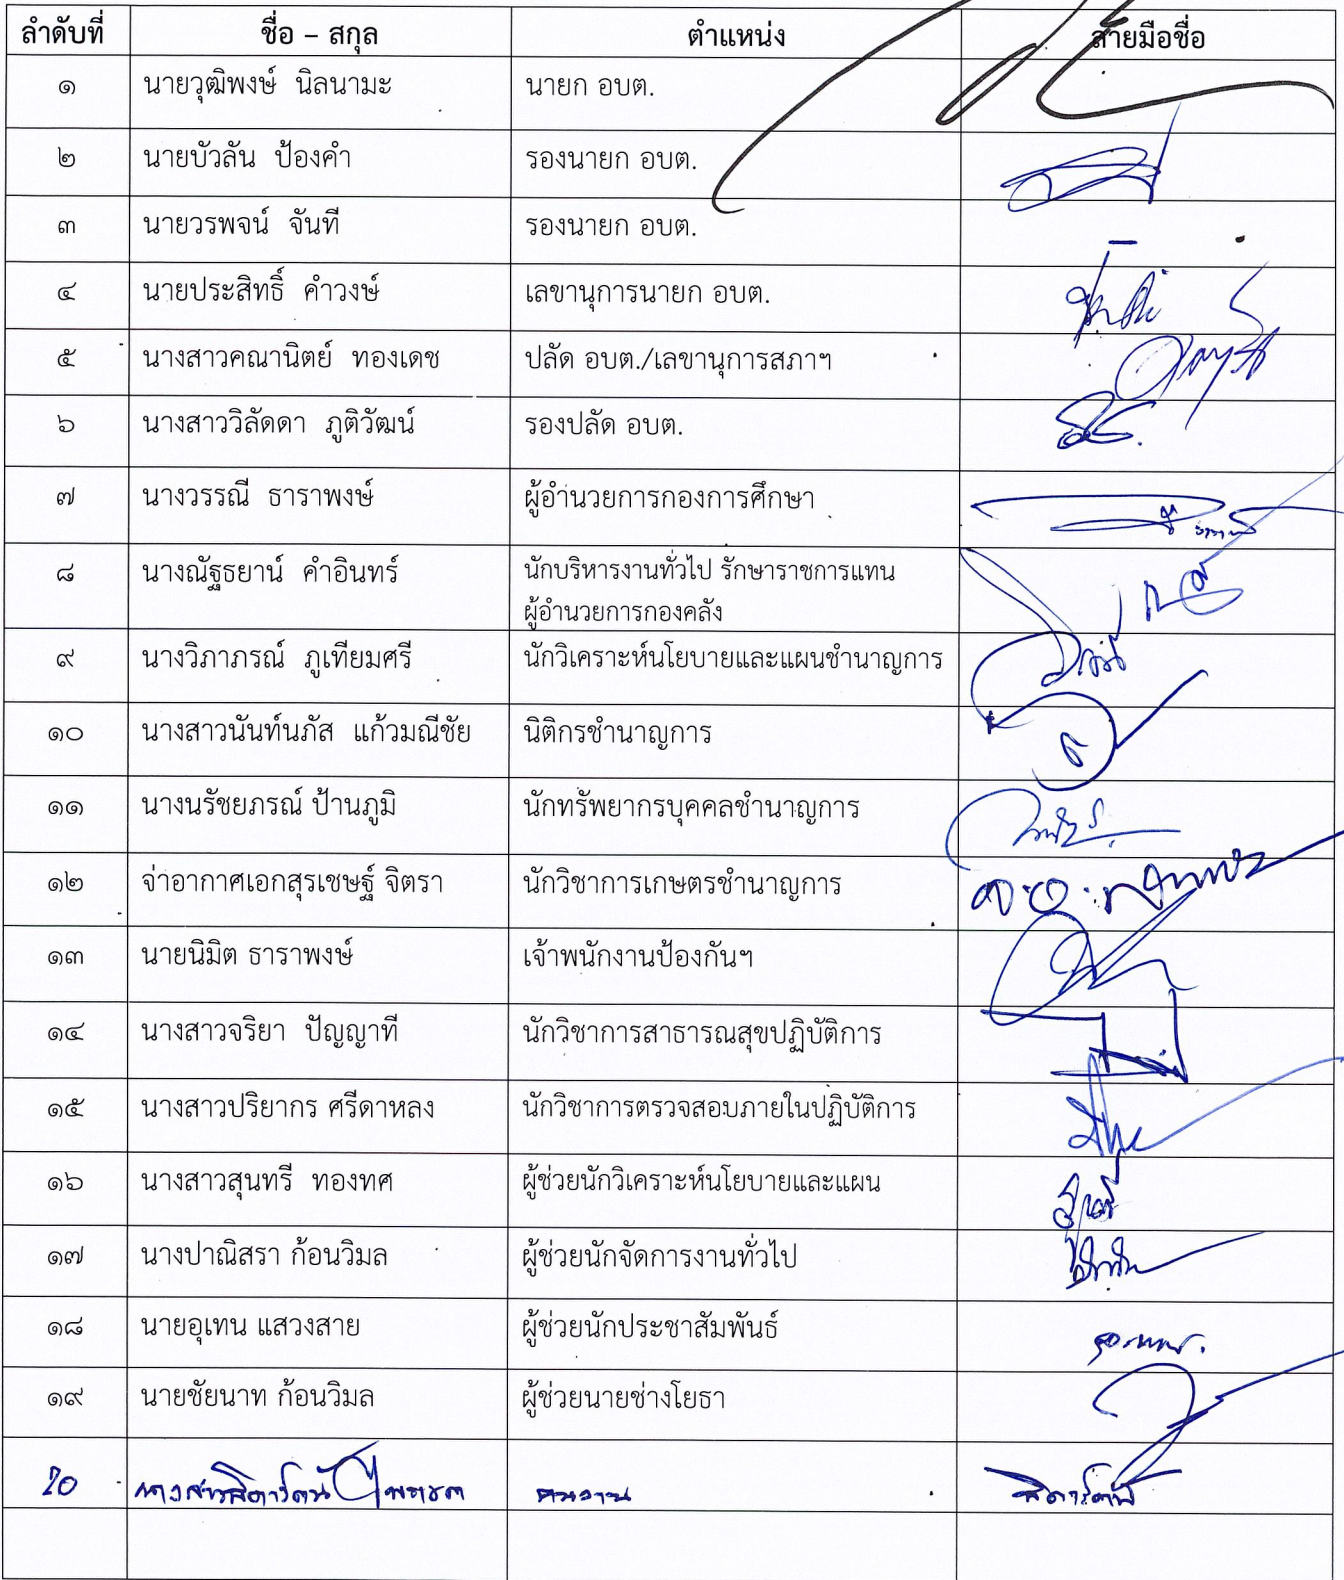 ลำดับที่ ชื่อ – สกุล ตำแหน่ง ลายมือชื่อ
๑ นายวุฒิพงษ์ นิลนามะ นายก อบต.
๒ นายบัวลัน ป้องคำ รองนายก อบต.
๓ นายวรพจน์ จันที รองนายก อบต.
๔ นายประสิทธิ์ คำวงษ์ เลขานุการนายก อบต.
๕ นางสาวคณานิตย์ ทองเดช ปลัด อบต./เลขานุการสภาฯ
๖ นางสาววิลัดดา ภูติวัฒน์ รองปลัด อบต.
๗ นางวรรณี ธาราพงษ์ ผู้อำนวยการกองการศึกษา
๘ นางณัฐธยาน์ คำอินทร์ นักบริหารงานทั่วไป รักษาราชการแทน
ผู้อำนวยการกองคลัง
๙ นางวิภาภรณ์ ภูเทียมศรี นักวิเคราะห์นโยบายและแผนชำนาญการ
๑๐ นางสาวนันท์นภัส แก้วมณีชัย นิติกรชำนาญการ
๑๑ นางนรัชยภรณ์ ป้านภูมิ นักทรัพยากรบุคคลชำนาญการ
๑๒ จ่าอากาศเอกสุรเชษฐ์ จิตรา นักวิชาการเกษตรชำนาญการ
๑๓ นายนิมิต ธาราพงษ์ เจ้าพนักงานป้องกันฯ
๑๔ นางสาวจริยา ปัญญาที นักวิชาการสาธารณสุขปฏิบัติการ
๑๕ นางสาวปริยากร ศรีดาหลง นักวิชาการตรวจสอบภายในปฏิบัติการ
๑๖ นางสาวสุนทรี ทองทศ ผู้ช่วยนักวิเคราะห์นโยบายและแผน
๑๗ นางปาณิสรา ก้อนวิมล ผู้ช่วยนักจัดการงานทั่วไป
๑๘ นายอุเทน แสวงสาย ผู้ช่วยนักประชาสัมพันธ์
๑๙ นายชัยนาท ก้อนวิมล ผู้ช่วยนายช่างโยธา
20 นางสาวสิดารัตน์ คนงาน สิดารัตน์